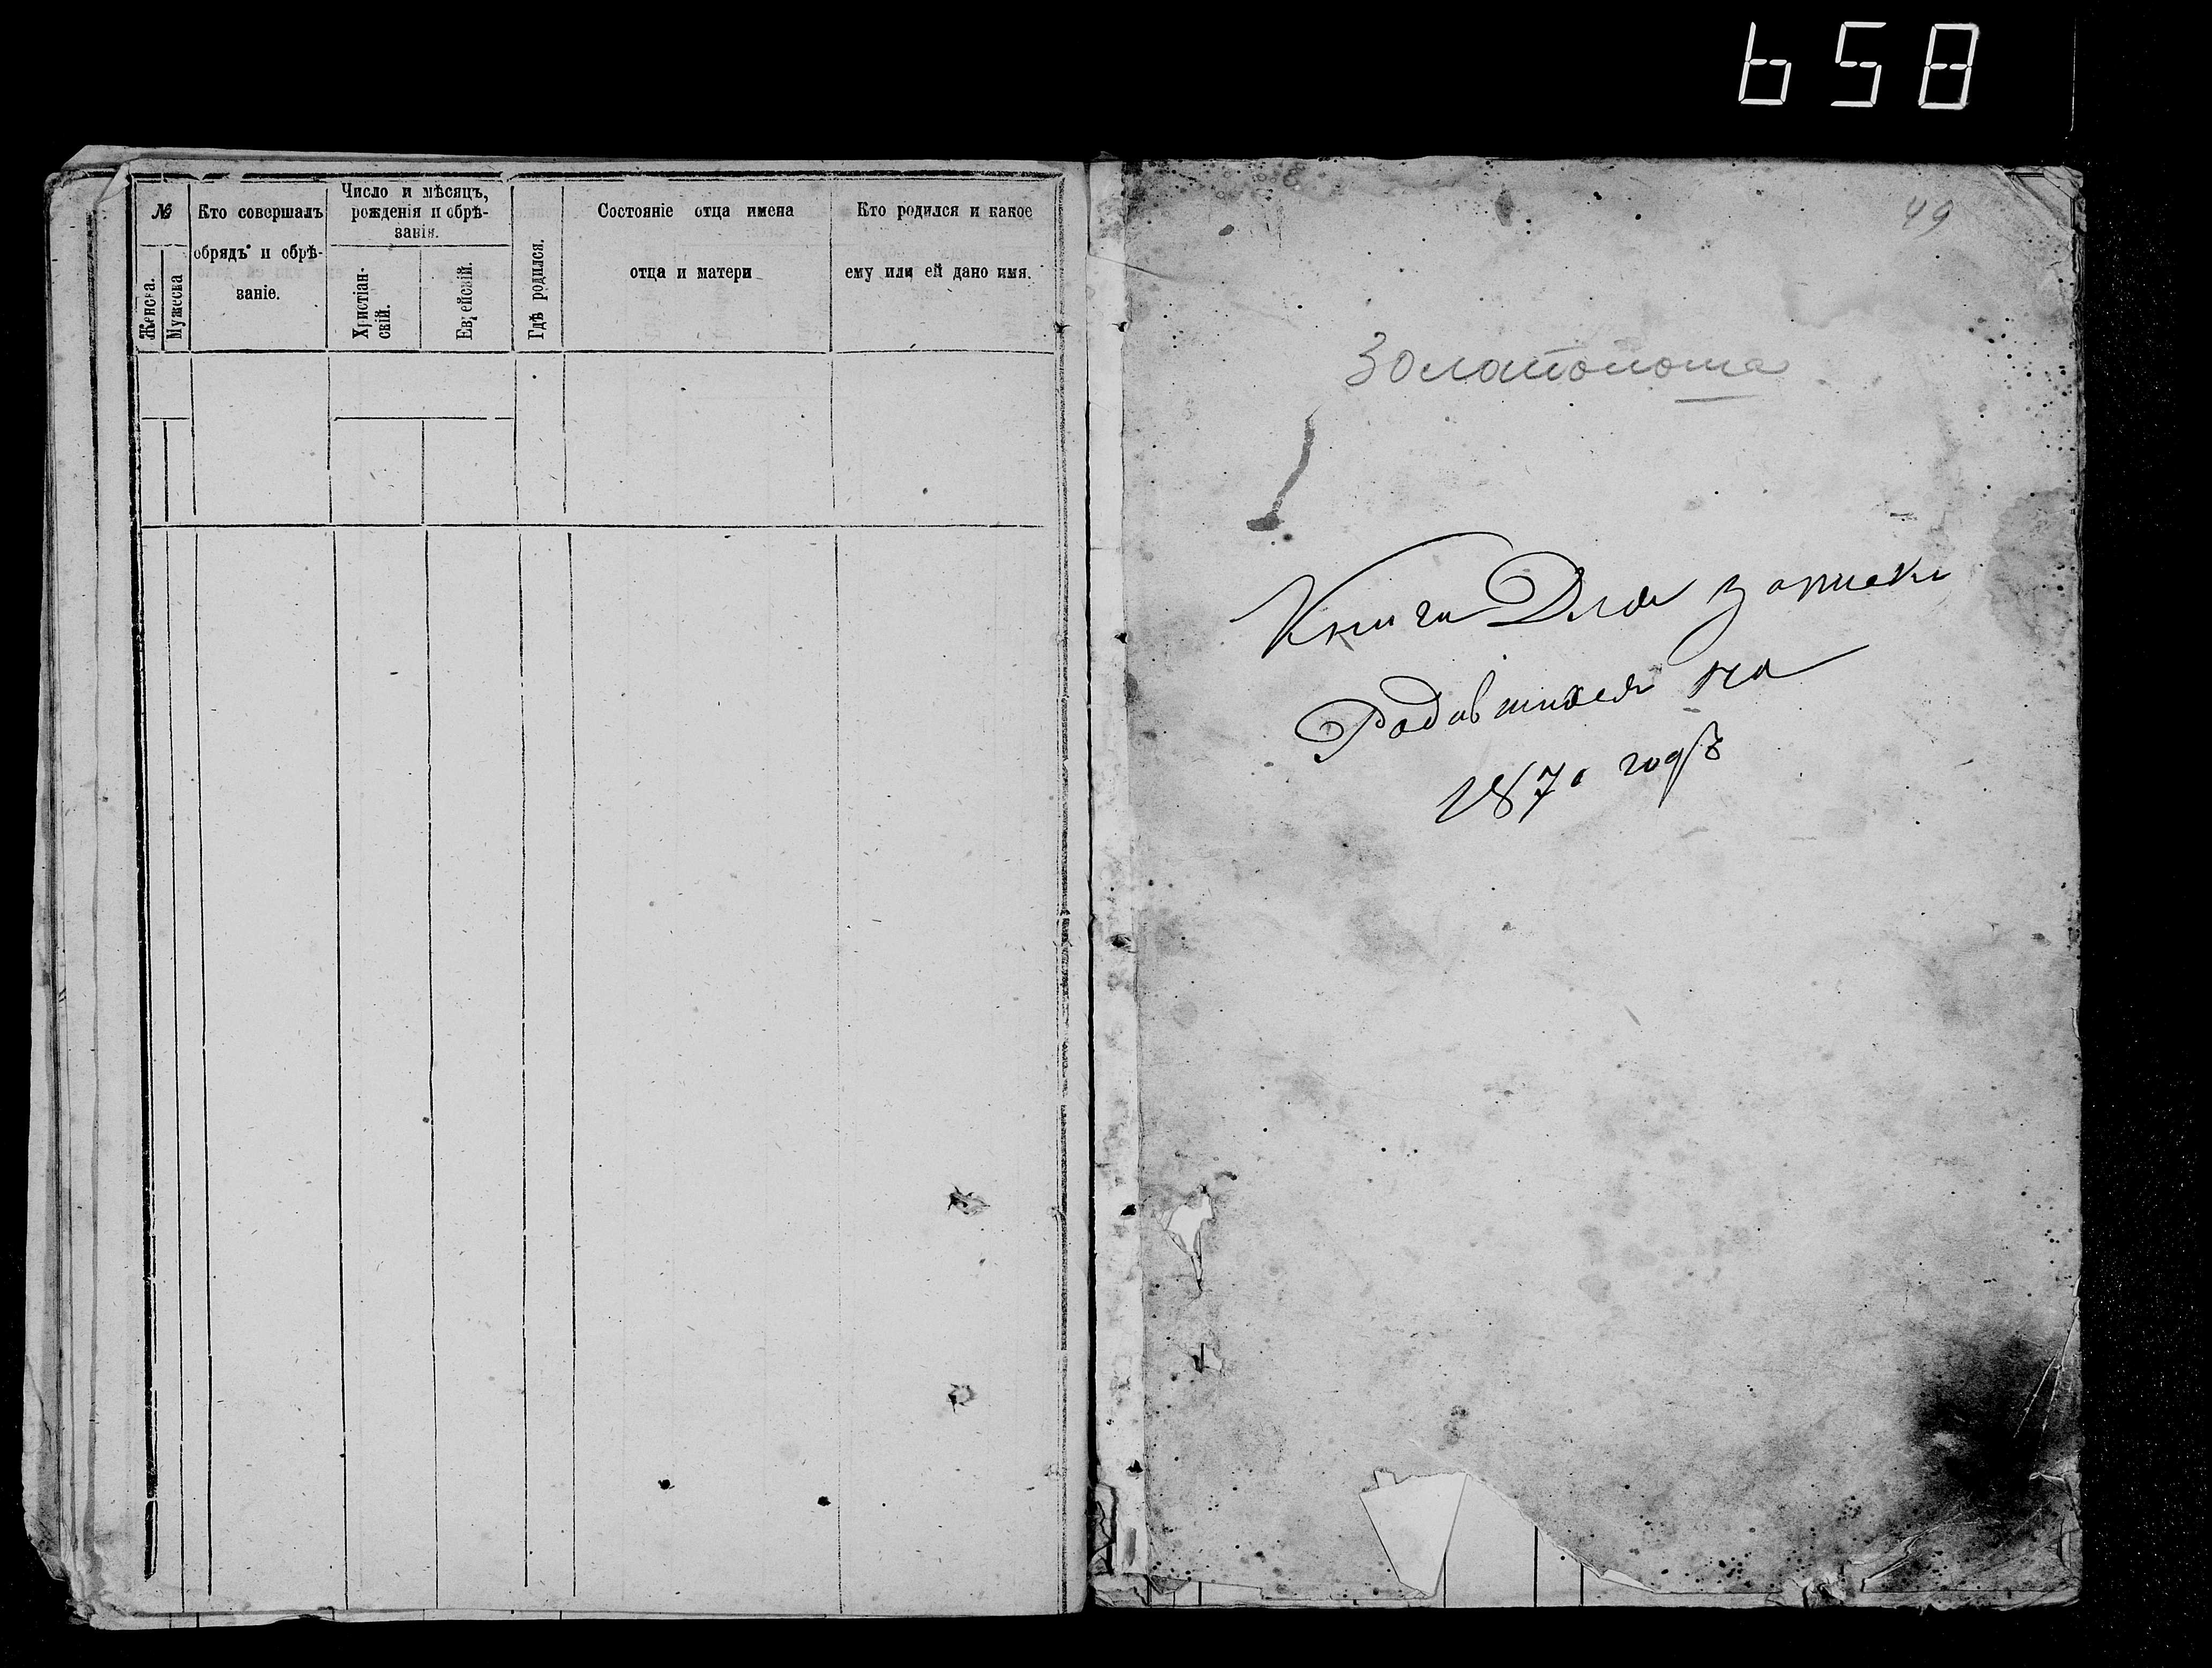 658
№
Женска.
Мужеска
Кто совершалъ
обрядъ и обрѣ-
заніе.
Число и мѣсяцъ,
рожденія и обрѣ-
занія.
Христіан-
скій.
Еврейскій.
Гдѣ родился.
Состояніе отца имена
отца и матери
Кто родился и какое
ему или ей дано имя.
49
Золотоноша
Книга Для записки
Родившихся на
1870 годъ